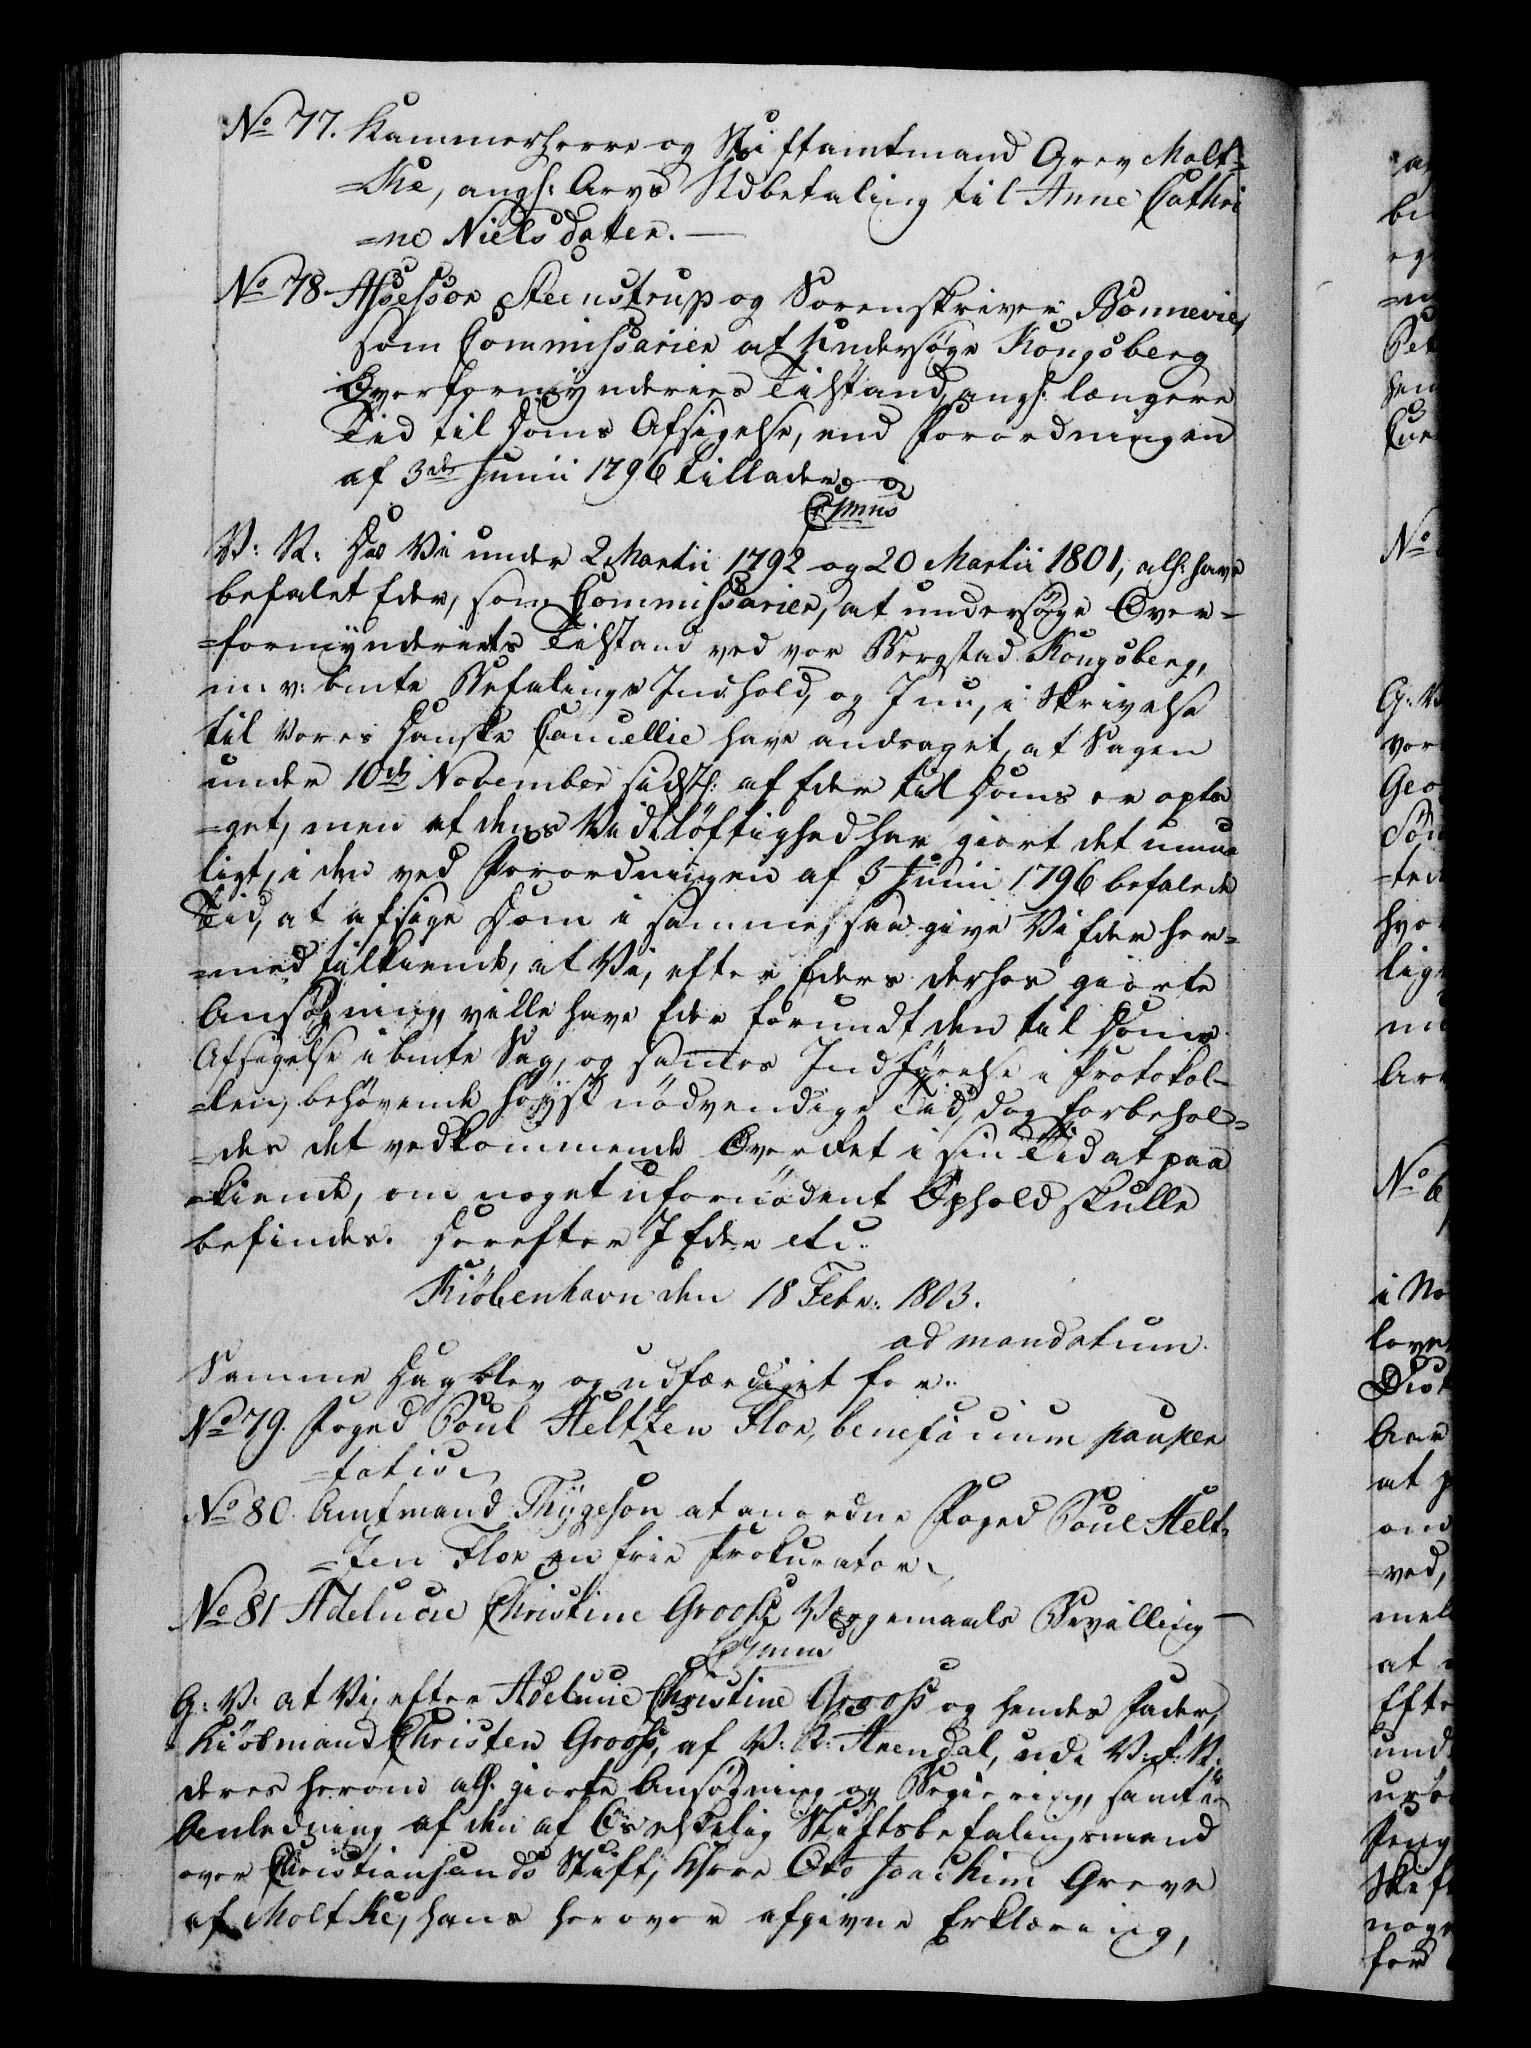 No 77. Kammerherre og Stiftamtmand Grev Molt=
=ke, angl: Arvs Udbetaling til Anne Cathri
=ne Nielsdatter. —
No 78 Assessor Steenstrup og Sorenskriver Bonnevie,
som Commissarier at undersøge Kongsberg
Overformynderies Tilstand, angl: længere
Tid til Doms Afsigelse, end Forordningen
af 3die Junii 1796 tillader
V: R: Da Vi under 2 Martii 1792 og 20 Martii 1801, allr: have
befalet Eder, som Commissarier, at undersøge Over-
=formynderiets Tilstand ved vor Bergstad Kongsberg,
m: v: bmte Befalings Indhold, og I nu, i Skrivelse
til Vores Danske Cancellie have andraget, at Sagen
under 10de November sidstl: af Eder til Doms er opta
=get, men at dens Vidtløftighed har giort det umue
ligt, i den ved Forordningen af 3 Junii 1796 befalede
Tid, at afsige Dom i samme, saa give Vi Eder her=
=med tilkiende, at Vi, efter Eders derhos giorte
Ansøgning, ville have Eder forundt den til Doms
Afsigelse i bmte Sag, og sammes Indførelse i Protokol-
=len, behøvende høyst nødvendige Tid, dog forbehol=
=des det vedkommende Overret i sin Tid at paa
=kiende, om noget ufornødent Ophold skulle
befindes. Derefter I Eder etc:
Kiöbenhavn den 18 Febr: 1803.
ad mandatum.
Samme Dag blev og udfærdiget for:
No 79. Foged Poul Heltzen Flor, beneficium pauper
=tatis
No 80. Amtmand Thygeson at anordne Foged Poul Helt=
=zen Flor en frie Prokurator
No 81 Adelucie Christine Grooss Værgemaals Bevilling —
G: V: at Vi, efter Adelucie Christine Grooss og hendes Fader,
Kiöbmand Christen Grooss, af V: K: Arendal, udi V: R: N:
deres herom allr: giorte Ansøgning og Begiering, samt i
Anledning af den af Os elskelig Stiftsbefalingsmand
over Christiansands Stift, Herr Otto Joachim Greve
af Moltke, hans herover afgivne Erklæring,